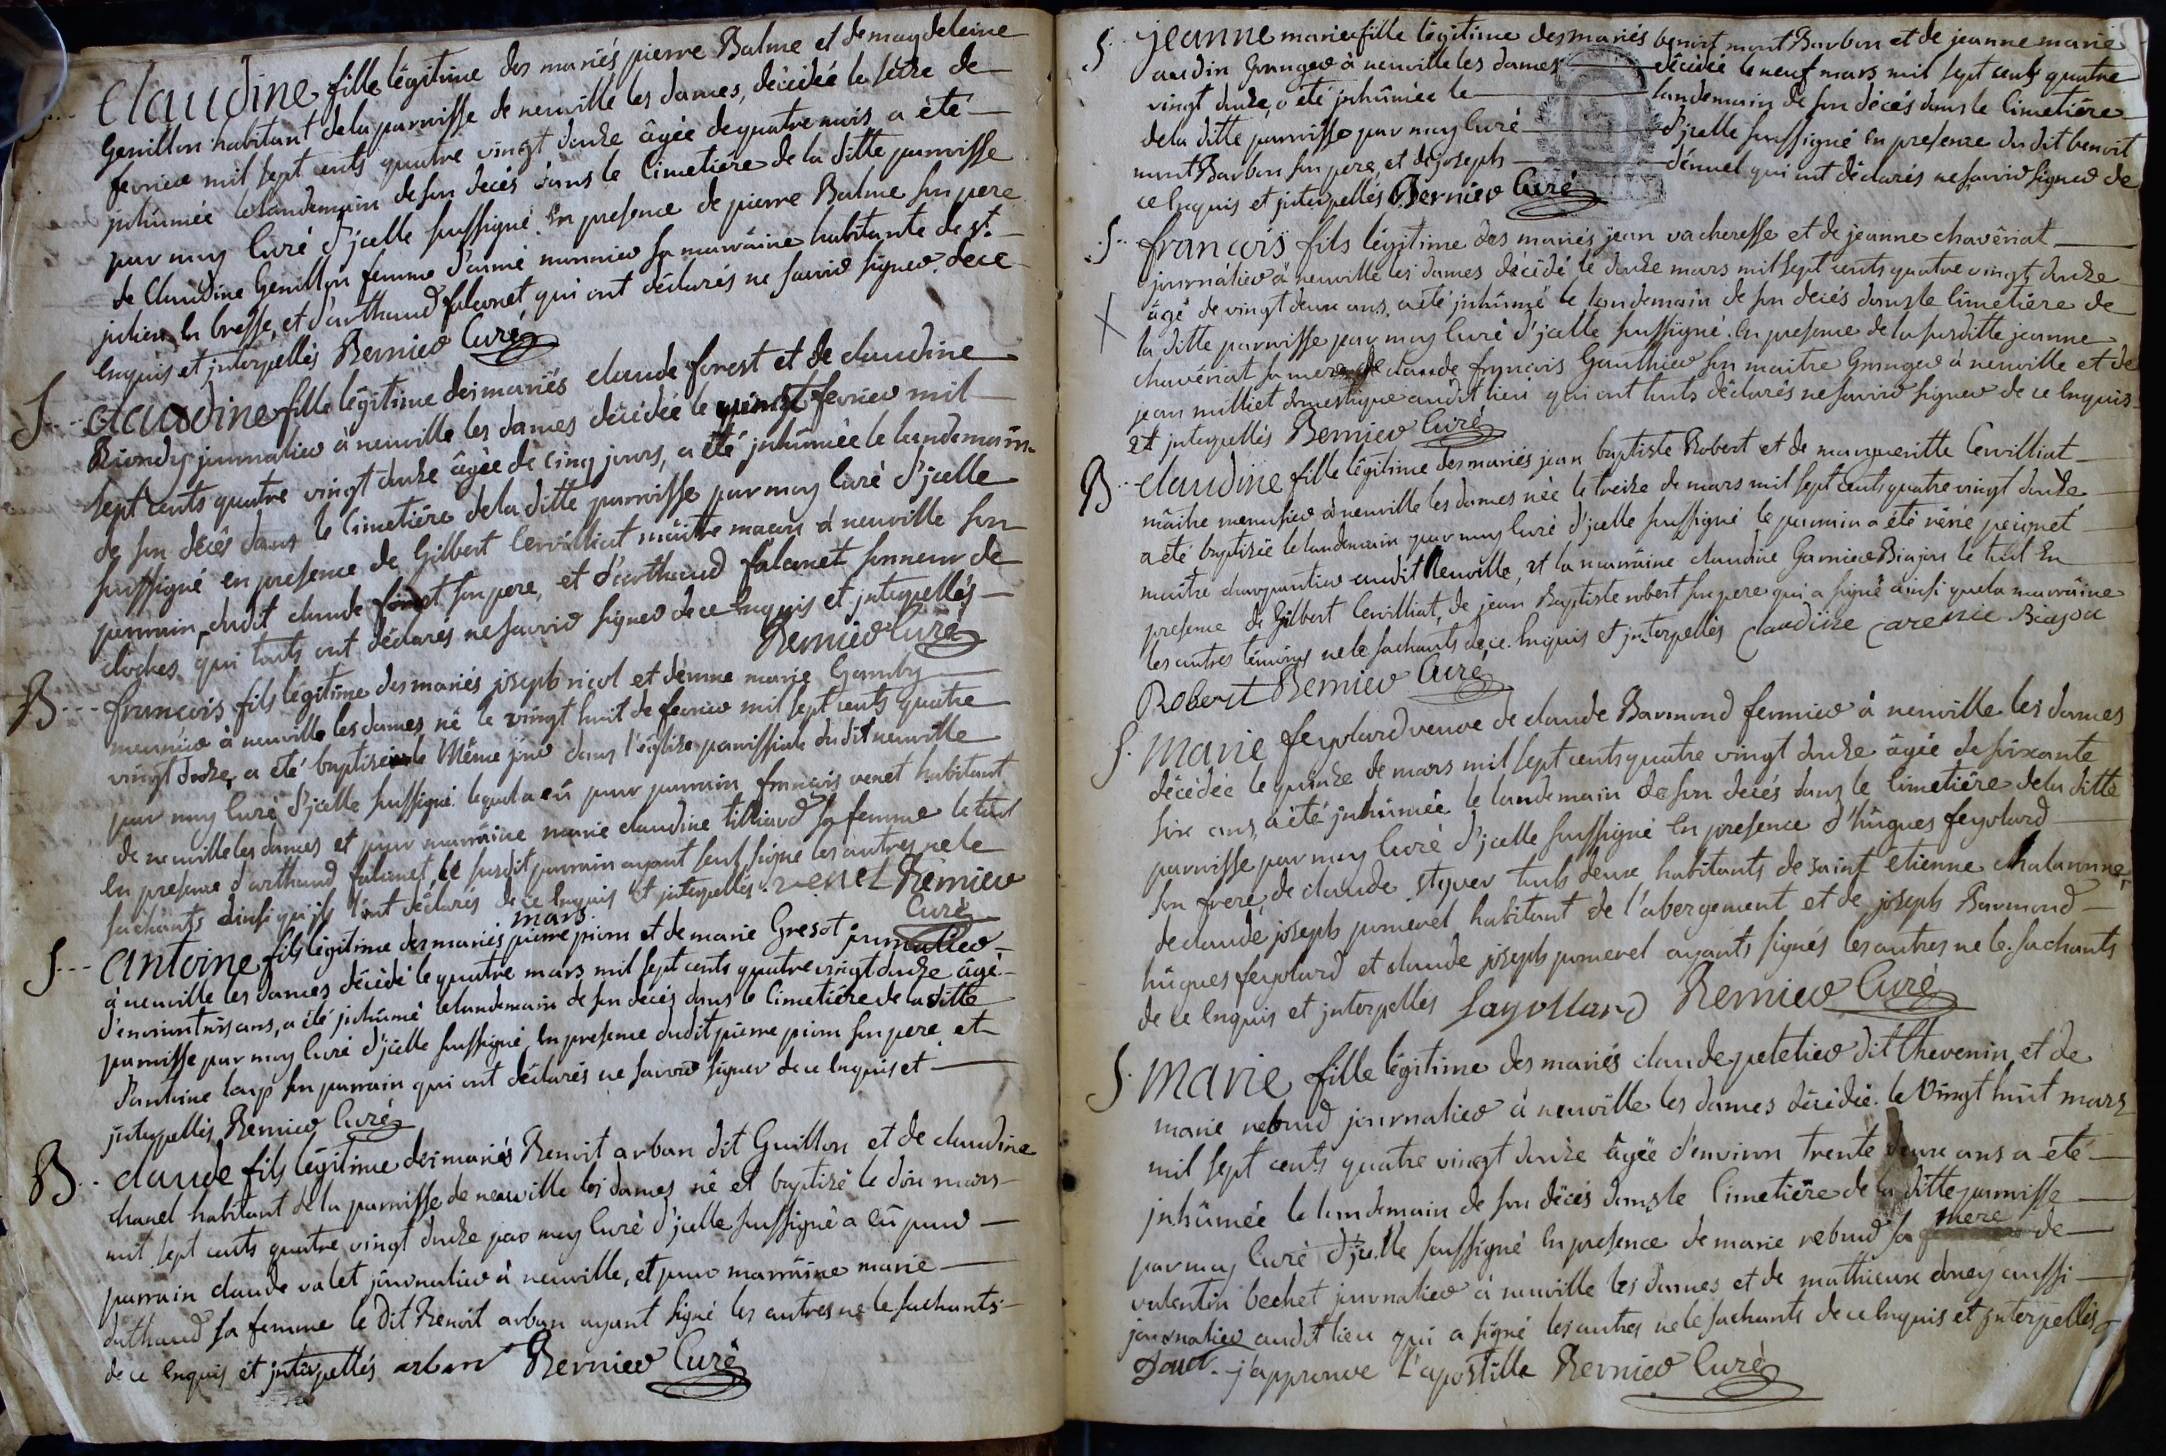 S claudine fille légitime des mariés pierre Balme et de magdeleine
Genillon habitant de la parroisse de neuville les dames, décédée le seize de
fevrier mil sept cents quatre vingt douze âgée de quatre mois a été
jnhûmée le landemain de son decés dans le Cimetiere de la ditte parroisse
par moy Curé d'jcelle soussigné. En presence de pierre Balme son pere
de Claudine Genillon femme d'aimé monnier sa marraine habitante de st.
julien En bresse, et d'arthaud falconet qui ont déclarés ne savoir signer de ce
Enquis et jnterpellés Bernier Curé
S claudine fille légitime des mariés claude forest et de claudine
Biondy journalier à neuville les dames décédée le vingt fevrier mil
sept cents quatre vingt douze âgée de cinq jours, a été jnhûmée le landemain
de son décés dans le Cimetiére de la ditte parroisse par moy Curé d'jcelle
soussigné en presence de Gilbert Cervilliat maitre maçon à neuville son
parrain, dudit claude forest son pere, et d'arthaud falconet sonneur de
cloches qui touts ont déclarés ne savoir signer de ce Enquis et jnterpellés
Bernier Curé
B francois fils légitime des mariés joseph nicol et d'emme marie Gamby
meunier à neuville les dames né le vingt huit de fevrier mil sept cents quatre
vingt douze, a été baptisé le Même jour dans l'église parroissiale du dit neuville
par moy Curé d'jcelle soussigné. lequel a eû pour parrain francois venet habitant
de neuville les dames et pour marraine marie claudine tilliard sa femme le tout
En presence d'arthaud falconet, le susdit parrain ayant seul signé les autres ne le
sachants ainsi qu'jls l'ont déclarés de ce Enquis et jnterpellés. venet Bernier
Curé
mars
S antoine fils légitime des mariés pierre piom et de marie Gresot journalier
à neuville les dames décédé le quatre mars mil sept cents quatre vingt douze âgé
d'environ trois ans, a été jnhûmé le landemain de son decés dans le Cimetiére de la ditte
parroisse par moy Curé d'jcelle soussigné, En presence dudit pierre piom son pere, et
d'antoine loup son parrain qui ont déclarés ne savoir signer de ce Enquis et
jnterpellés Bernier Curé
B claude fils légitime des mariés Benoit arban dit Guillon et de claudine
chanel habitant de la parroisse de neuville les dames né et baptisé le dix mars
mil sept cents quatre vingt douze par moy Curé d'jcelle soussigné a eû pour
parrain claude valet journalier à neuville, et pour marraine marie
duthaud sa femme le dit Benoit arban ayant signé les autres ne le sachants
de ce Enquis et jnterpellés arban Bernier Curé
S jeanne marie fille légitime des mariés benoit mont Barbon et de jeanne marie
audin Granger à neuville les dames décédée le neuf mars mil sept cents quatre
vingt douze, a été jnhûmée le landemain de son décés dans le Cimetiére
de la ditte parroisse par moy Curé d'jcelle soussigné En presence du dit benoit
mont Barbon son pere, et de joseph dénuel qui ont déclarés ne savoir signer de
ce Enquis et jnterpellés Bernier Curé
S francois fils légitime des mariés jean vacheresse et de jeanne chavériat
journalier à neuville les dames décédé le douze mars mil sept cents quatre vingt douze
âgé de vingt deux ans, a été jnhûmé le landemain de son decés dans le Cimetiére de
la ditte parroisse par moy Curé d'jcelle soussigné. En presence de la susditte jeanne
chavériat sa mere de claude francois Gauthier son maitre Granger à neuville et de
jean milliet domestique audit lieu qui ont touts déclarés ne savoir signer de ce Enquis
et jnterpellés Bernier Curé
B claudine fille légitime des mariés jean baptiste Robert et de marguerittte Cervilliat
maitre menusier à neuville les dames née le treize de mars mil sept cents quatre vingt douze
a été baptisée le landemain par moy Curé d'jcelle soussigné le parrain a été réné peignet
maitre charpantier audit Neuville, et la marraine claudine Garnier Biajou le tout En
presence de Gilbert Cervilliat, de jean Baptiste robert son pere qui a signé ainsi que la marraine
les autres témoins ne le sachants de ce Enquis et jnterpellés claudine Biajou
Robert Bernier Curé
S. Marie feyolard veuve de claude Barmond fermier à neuville les dames
décédée le quinze de mars mil sept cents quatre vingt douze âgée de soixante
six ans, a été jnhûmée le landemain de son decés dans le Cimetiére de la ditte
parroisse par moy Curé d'jcelle soussigné En presence d'hûgues feyolard
son frere, de claude touts deux habitants de saint étienne chalaronne,
de claude joseph pomerel habitant de l'abergement et de joseph Barmond
hûgues feyolard et claude joseph pomerel ayants signés les autres ne le sachants
de ce Enquis et jnterpellés fayollard Bernier Curé
S. Marie fille légitime des mariés claude peletier dit thevenin et de
marie rebud journalier à neuville les dames décédée le Vingt huit mars
mil sept cents quatre vingt douze âgée d'environ trente deux ans a été
jnhûmée le landemain de son décés dans le Cimetiére de la ditte parroisse
par moy Curé d'jcelle soussigné En presence de marie rebud sa mere de
valentin bechet journalier à neuville les dames et de mathieux doney aussi
journalier audit lieu qui a signé les autres ne le sachants de ce Enquis et jnterpellés
j'approuve L'apostille Bernier Curé